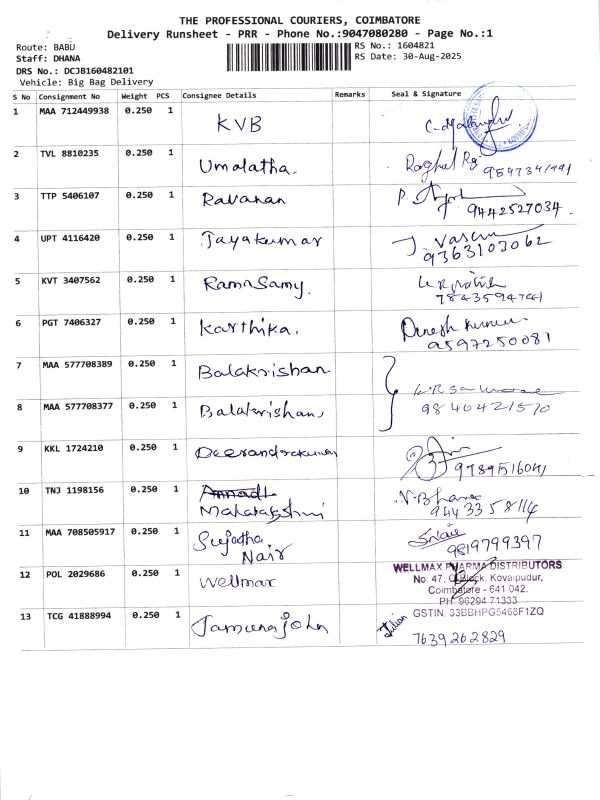 THE PROFESSIONAL COURIERS, COIMBATORE
Delivery Runsheet - PRR - Phone No.:9047080280 - Page No.:1
Route: BABU
Staff: DHANA
DRS No.: DCJB160482101
Vehicle: Big Bag Delivery
RS No.: 1604821
RS Date: 30-Aug-2025
S No Consignment No Weight PCS Consignee Details Remarks Seal & Signature
1 MAA 712449938 0.250 1 KVB
2 TVL 8810235 0.250 1 Umalatha.
3 TTP 5406107 0.250 1 Ravanan P.
9442527034.
4 UPT 4116420 0.250 1 Jayakumar J. Vasan
9363103062
5 KVT 3407562 0.250 1 RamaSamy.
6 PGT 7406327 0.250 1 Karthika. Dinesh Kumar
9597250081
7 MAA 577708389 0.250 1 Balakrishan
8 MAA 577708377 0.250 1 Balakrishan
9840421570
9 KKL 1724210 0.250 1
9789516041
10 TNJ 1198156 0.250 1 Mahalakshmi N.Bhana
9443358114
11 MAA 708505917 0.250 1 Sujatha
Nair
9819799397
12 POL 2029686 0.250 1 Wellmax
WELLMAX PHARMA DISTRIBUTORS
No: 47, Block, Kovaipudur,
Coimbatore - 641 042.
PH: 96294 71333
GSTIN: 33BBHPG5468F1ZQ
13 TCG 41888994 0.250 1 Jamuna john
7639262829